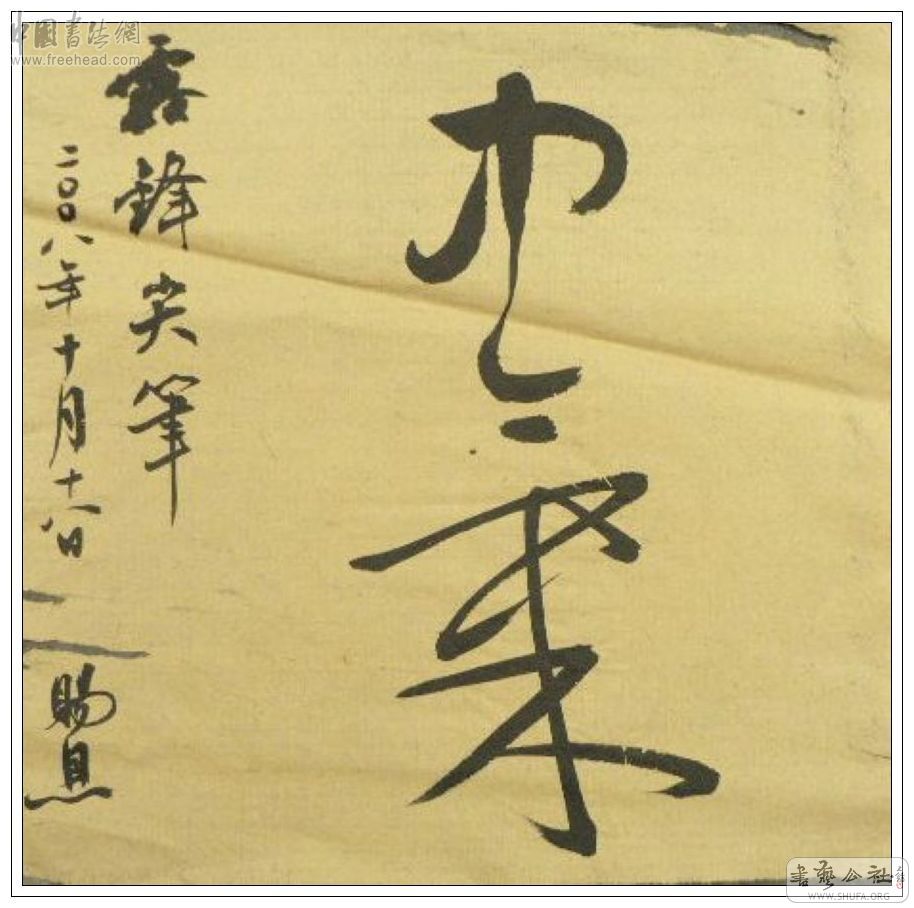 中國書法網
www.freehead.com
露鋒尖筆
二〇〇八年十月十八日
賜
書藝公社
WWW.SHUFA.ORG